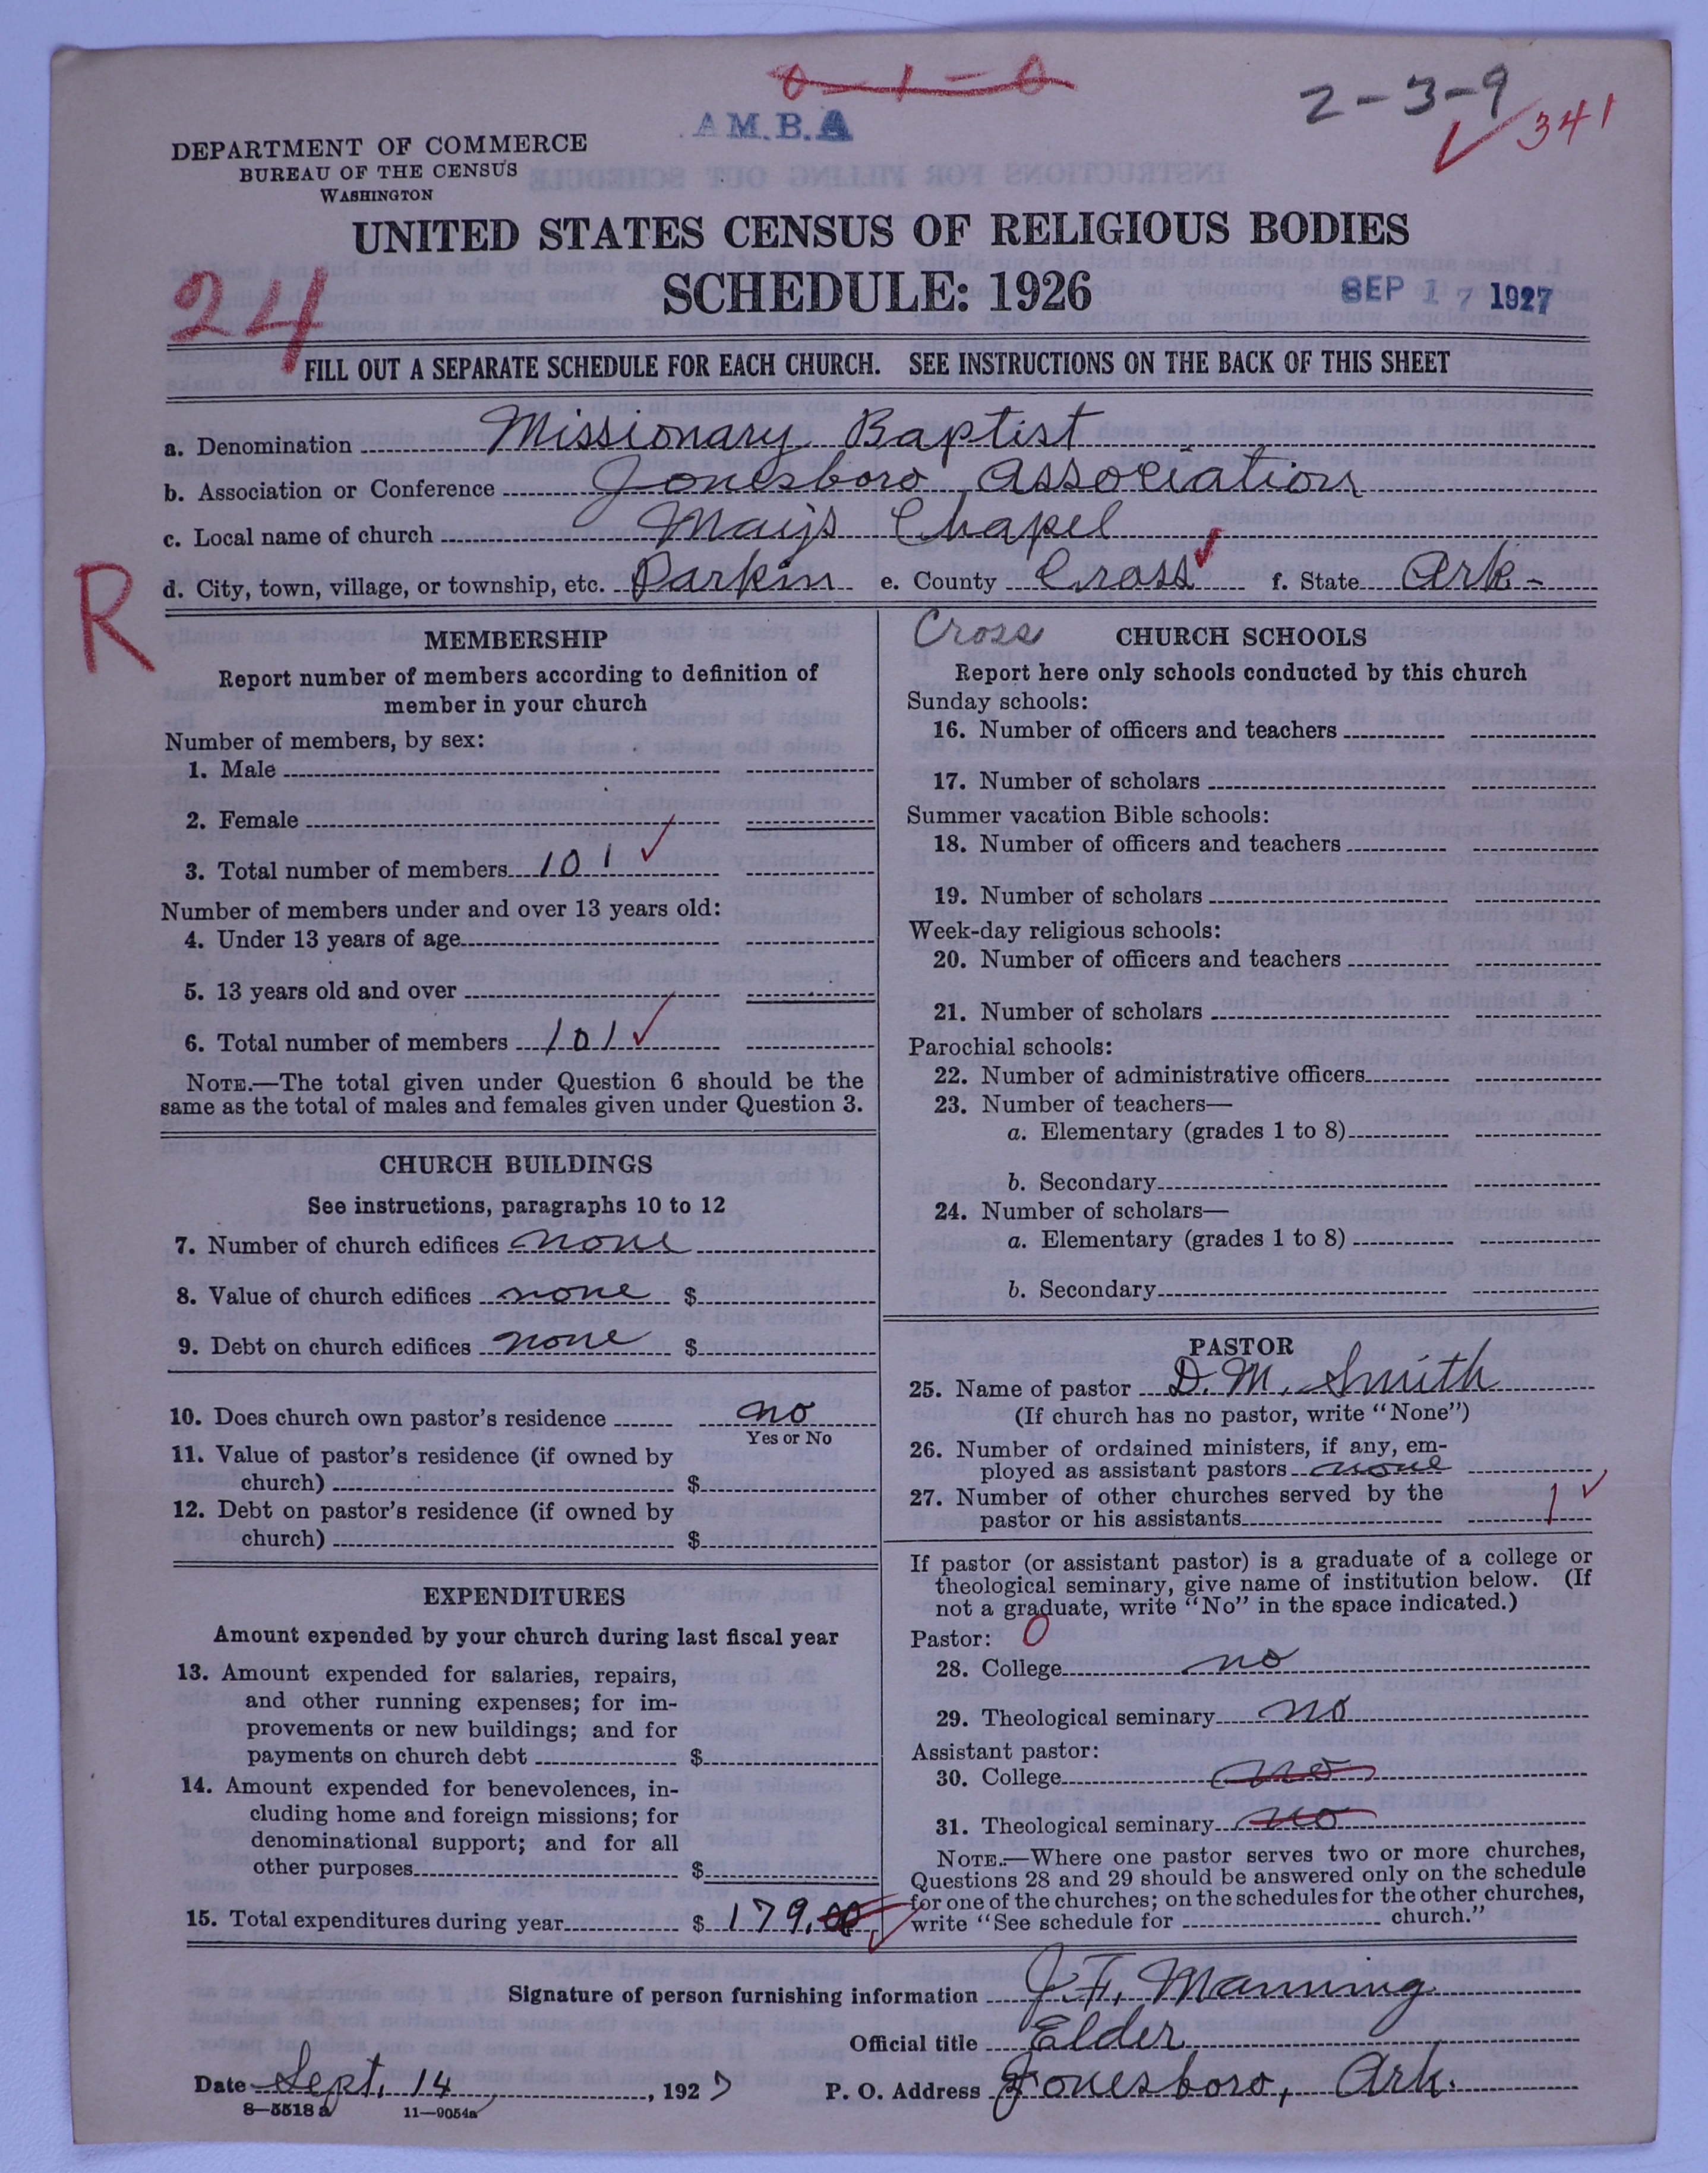 0-1-0
A.M.B.A
2-3-9
341
DEPARTMENT OF COMMERCE
BUREAU OF THE CENSUS
WASHINGTON
UNITED STATES CENSUS OF RELIGIOUS BODIES
SCHEDULE: 1926
SEP 17 1927
24
FILL OUT A SEPARATE SCHEDULE FOR EACH CHURCH. SEE INSTRUCTIONS ON THE BACK OF THIS SHEET
a. Denomination Missionary Baptist
b. Association or Conference Jonesboro Association
c. Local name of church Mays Chapel
d. City, town, village, or township, etc. Parkin e. County Cross f. State Ark-
R
MEMBERSHIP
Report number of members according to definition of
member in your church
Number of members, by sex:
1. Male
2. Female
3. Total number of members 101
Number of members under and over 13 years old:
4. Under 13 years of age
5. 13 years old and over
6. Total number of members 101
NOTE.—The total given under Question 6 should be the
same as the total of males and females given under Question 3.
CHURCH BUILDINGS
See instructions, paragraphs 10 to 12
7. Number of church edifices none
8. Value of church edifices none $
9. Debt on church edifices none $
10. Does church own pastor's residence no
Yes or No
11. Value of pastor's residence (if owned by
church) $
12. Debt on pastor's residence (if owned by
church) $
EXPENDITURES
Amount expended by your church during last fiscal year
13. Amount expended for salaries, repairs,
and other running expenses; for im-
provements or new buildings; and for
payments on church debt $
14. Amount expended for benevolences, in-
cluding home and foreign missions; for
denominational support; and for all
other purposes $
15. Total expenditures during year $ 179.00
Cross
CHURCH SCHOOLS
Report here only schools conducted by this church
Sunday schools:
16. Number of officers and teachers
17. Number of scholars
Summer vacation Bible schools:
18. Number of officers and teachers
19. Number of scholars
Week-day religious schools:
20. Number of officers and teachers
21. Number of scholars
Parochial schools:
22. Number of administrative officers
23. Number of teachers—
a. Elementary (grades 1 to 8)
b. Secondary
24. Number of scholars—
a. Elementary (grades 1 to 8)
b. Secondary
PASTOR
25. Name of pastor D. M. Smith
(If church has no pastor, write "None")
26. Number of ordained ministers, if any, em-
ployed as assistant pastors none
27. Number of other churches served by the
pastor or his assistants 1
If pastor (or assistant pastor) is a graduate of a college or
theological seminary, give name of institution below. (If
not a graduate, write "No" in the space indicated.)
Pastor: 0
28. College no
29. Theological seminary no
Assistant pastor:
30. College no
31. Theological seminary no
NOTE.—Where one pastor serves two or more churches,
Questions 28 and 29 should be answered only on the schedule
for one of the churches; on the schedules for the other churches,
write "See schedule for church."
Signature of person furnishing information J. F. Manning
Official title Elder
Date Sept. 14, 1927 P. O. Address Jonesboro, Ark.
8—5518 a 11—9054a